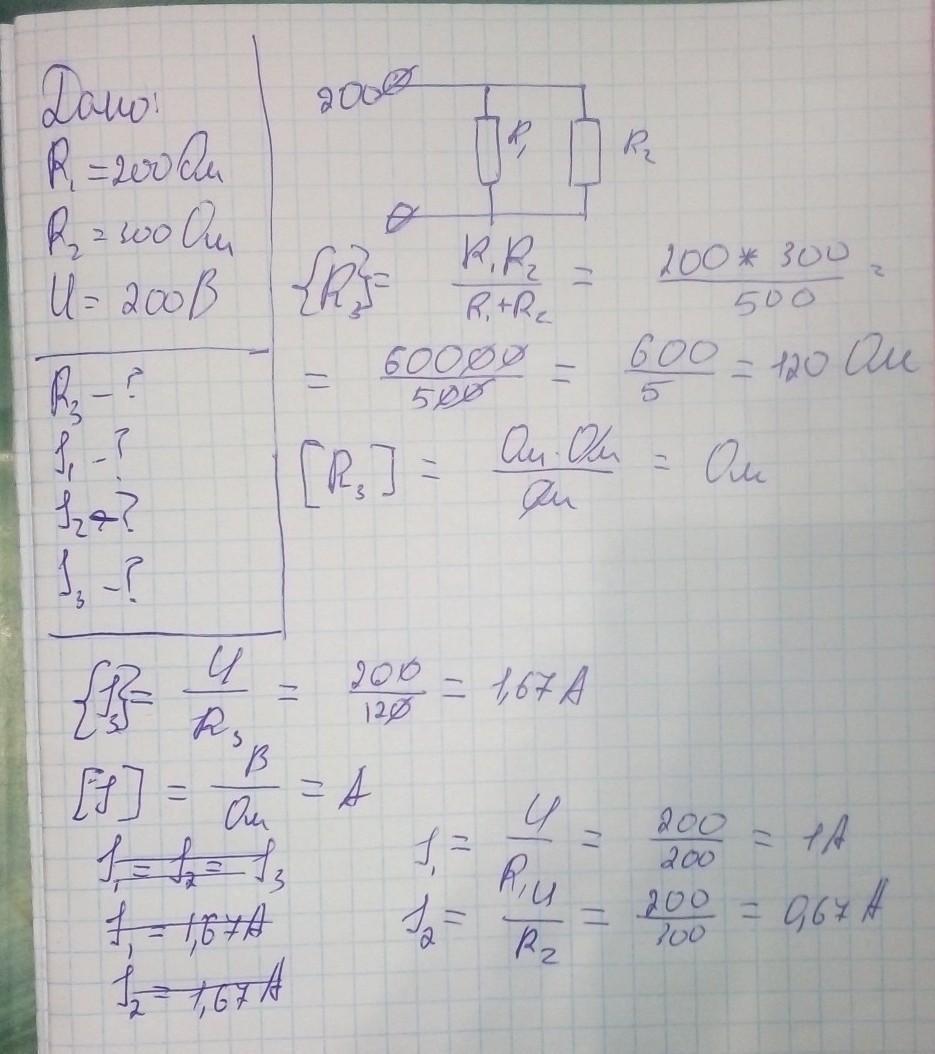 Дано:
R₁ = 200 Ом
R₂ = 300 Ом
U = 200 В
R₃ - ?
I₁ - ?
I₂ - ?
I₃ - ?
200
R₁
R₂
{R₃} = R₁R₂ / R₁+R₂ = 200 * 300 / 500 =
= 60000 / 500 = 600 / 5 = 120 Ом
[R₃] = Ом · Ом / Ом = Ом
{I₃} = U / R₃ = 200 / 120 = 1,67 А
[I] = В / Ом = А
I₁ = I₂ = I₃
I₁ = 1,67 А
I₂ = 1,67 А
I₁ = U / R₁ = 200 / 200 = 1 А
I₂ = U / R₂ = 200 / 300 = 0,67 А